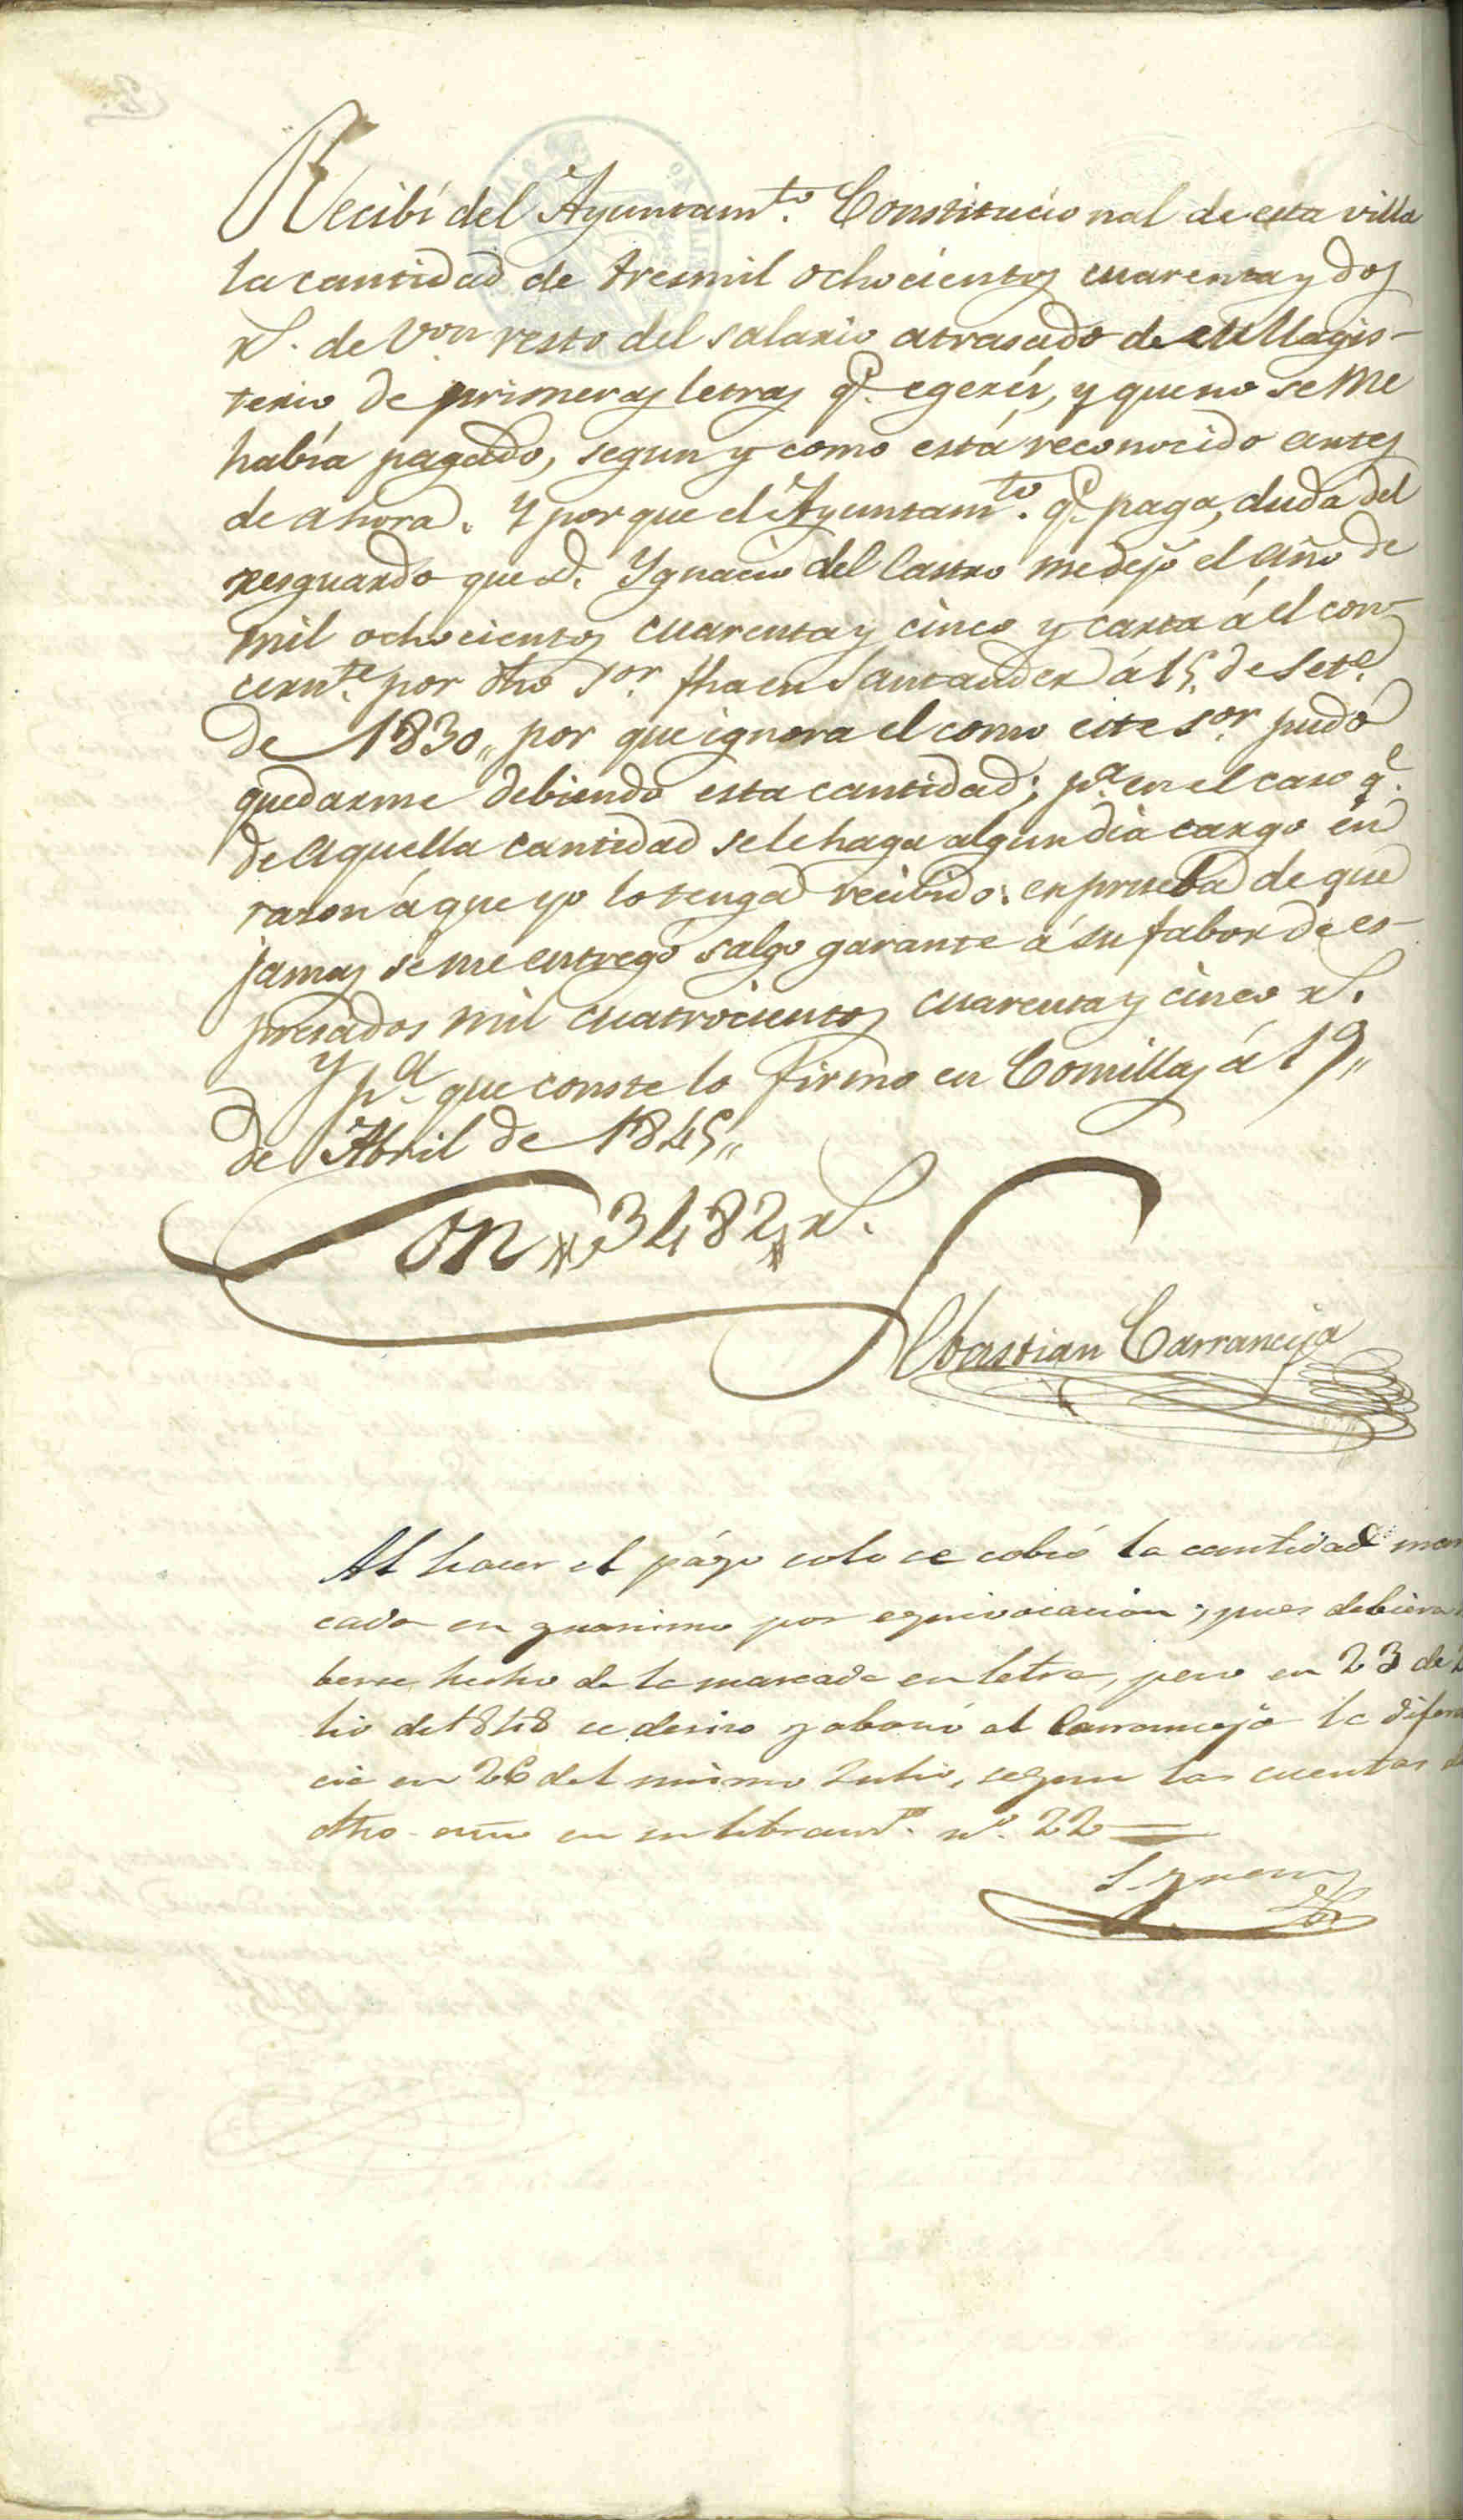 Recibí del Ayuntamto. Constitucional de esta villa
la cantidad de tresmil ochocientos cuarenta y dos
rs. de Von resto del salario atrasado de el Magis-
terio de primeras letras qe. egercí, y que no se me
había pagado, segun y como está reconocido antes
de ahora. Y por que el Ayuntamto. qe. paga, duda del
resguardo que D. Ygnacio del Castro me dejó el año de
mil ochocientos cuarenta y cinco y carta á el con-
cernte. por dho Sor. fha en Santander á 15. de Sete.
de 1830,, por que ignora el como este Sor. pudo
quedarme debiendo esta cantidad; pa. en el caso qe.
de aquella cantidad se le haga algun dia cargo en
razon á que yo lo tenga recibido: en prueba de que
jamas se me entregó salgo garante á su fabor de es-
presados mil cuatrocientos cuarenta y cinco rs.
Y pa. que conste lo firmo en Comillas á 19,,
de Abril de 1845,,
Son 3482 rs.
Sebastian Carranceja
Al hacer el págo solo se cobró la cantidad mar
cada en guarismo por equivocacion; pues debiera
berse hecho de la marcada en letra, pero en 23 de
lio de 1848 se deciso y abonó al Carranceja la difere
cia en 26 del mismo Julio, segun las cuentas de
dho año en su libramto. no. 22